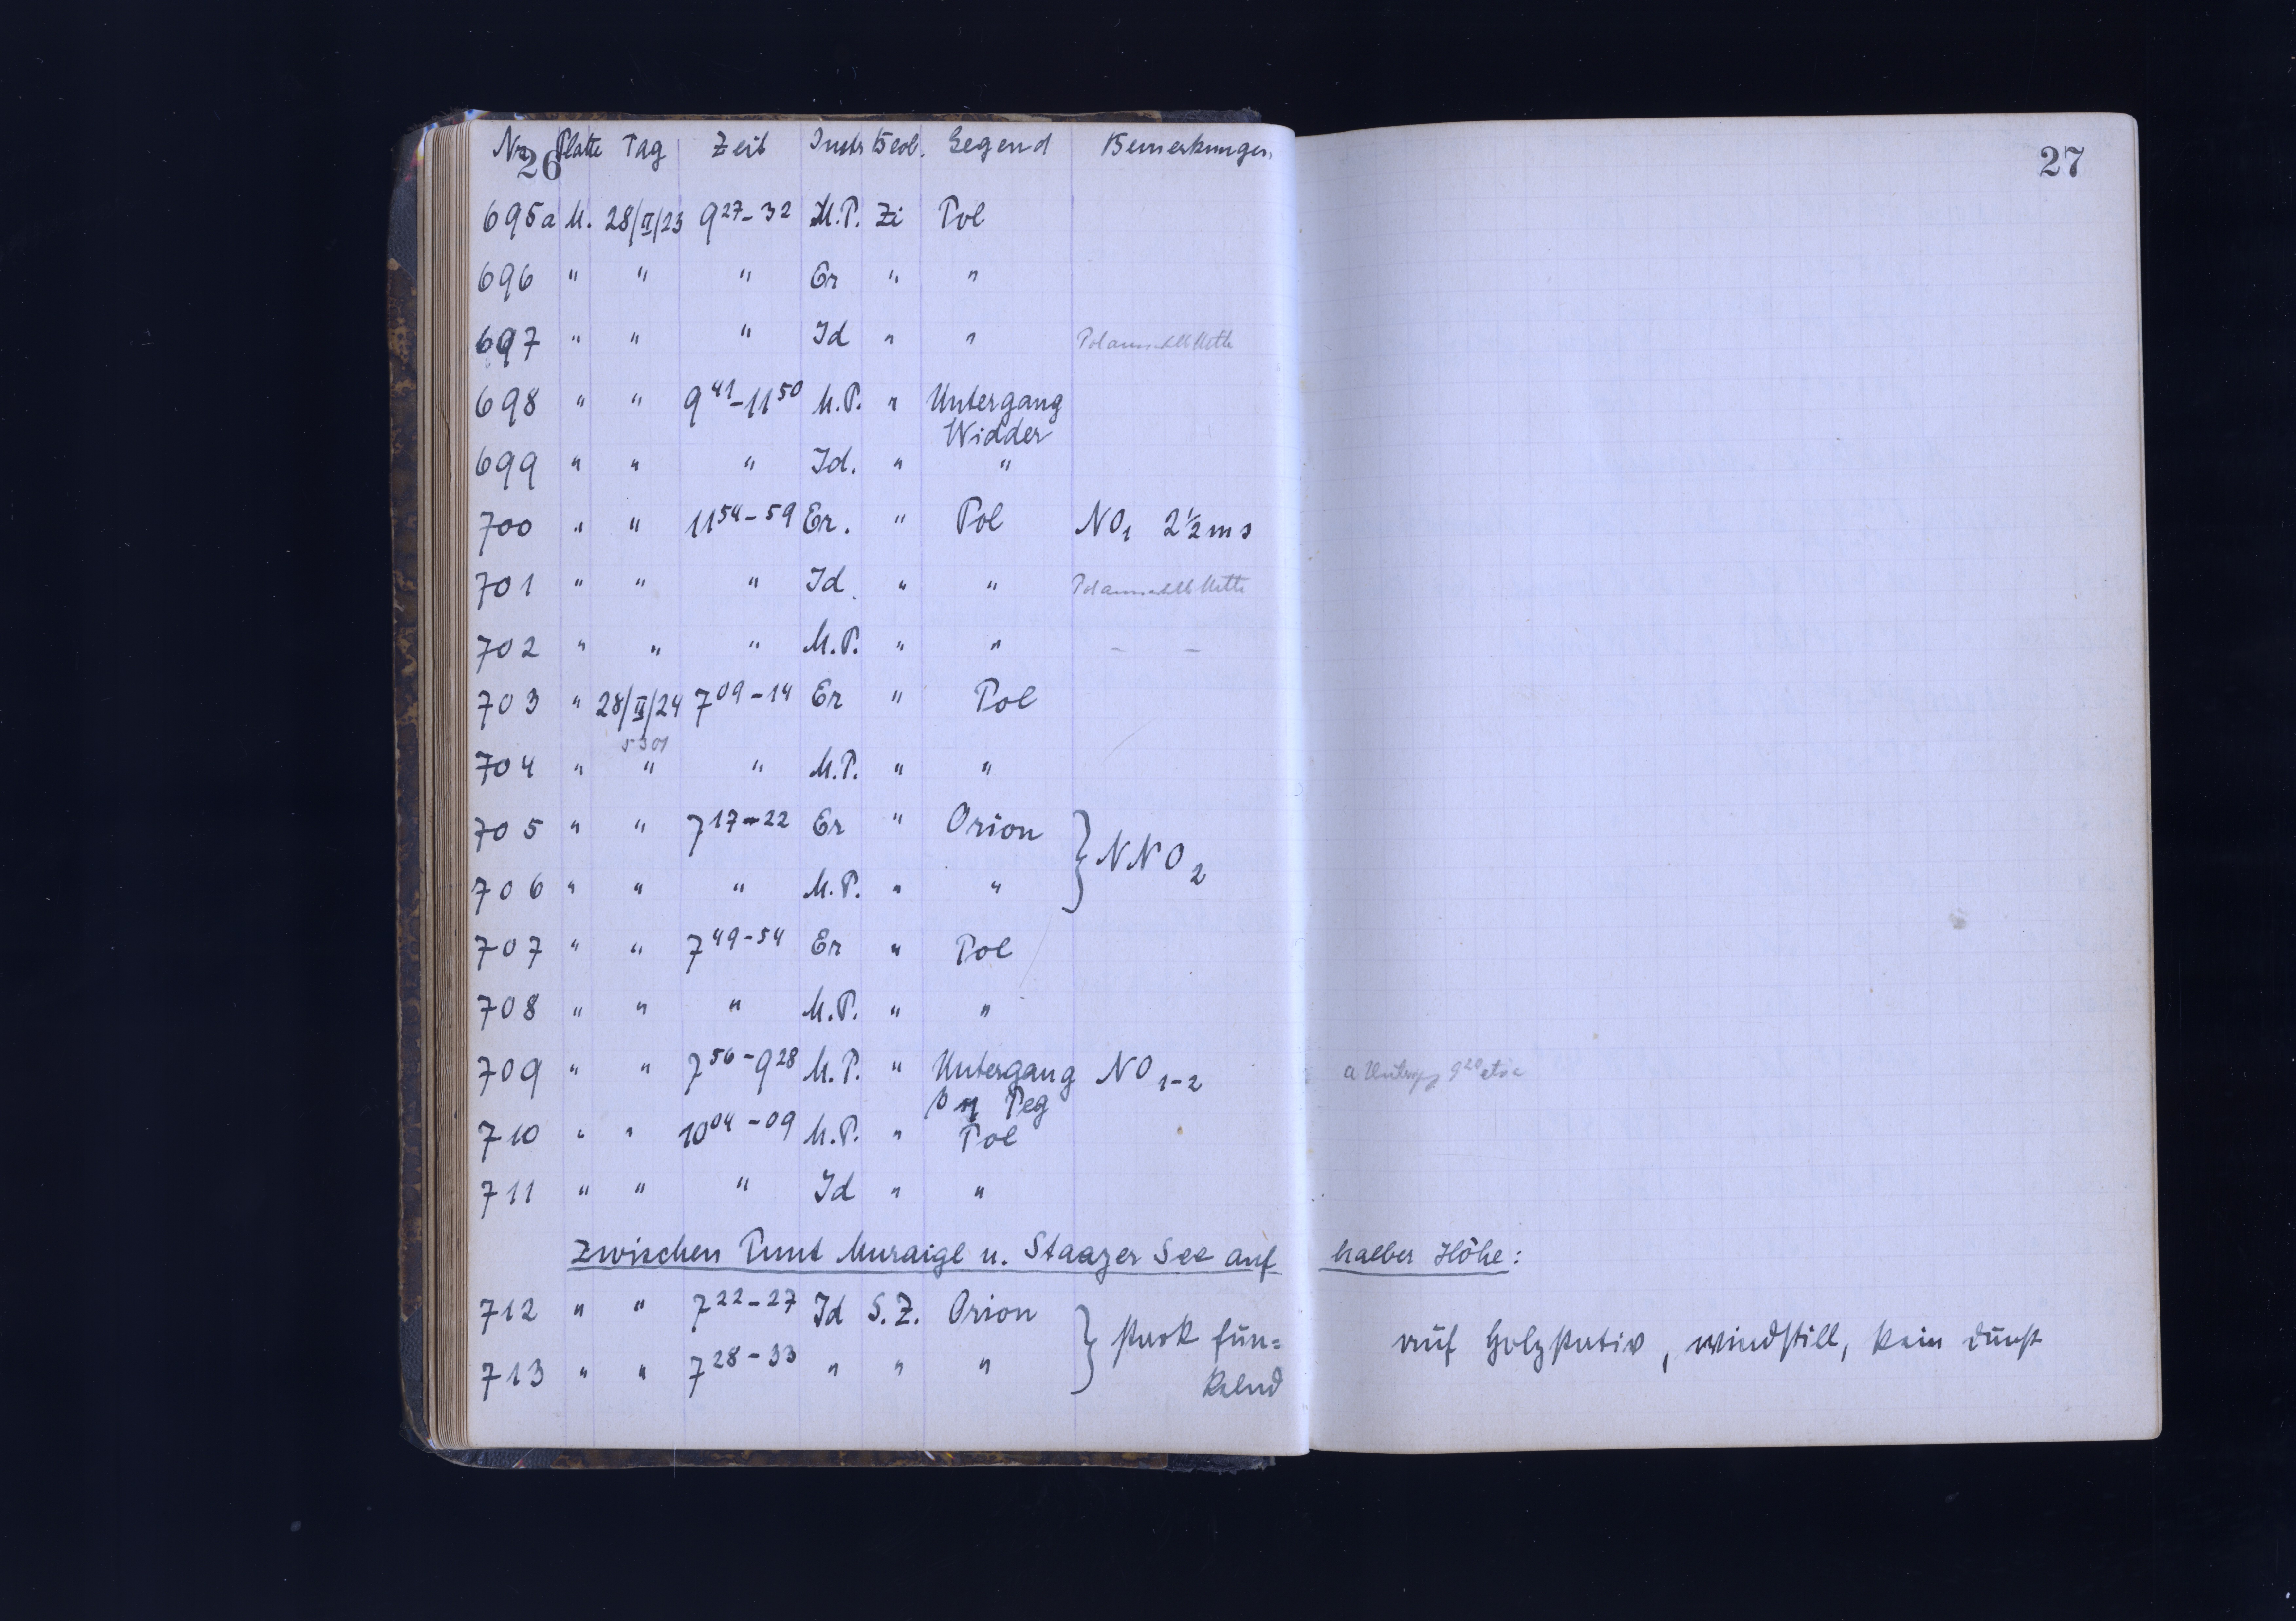 26
Nr. Platte Tag Zeit Instr Beob. Gegend Bemerkungen
27
695a M. 28/II/23 9 27-32 M.P. Zi Pol
696 " " " Er " "
697 " " " Id " "
698 " " 9 41-11 50 M.P. " Untergang
Widder
699 " " " Id. " "
700 " " 11 54-59 Er. " Pol NO1 2½ms
701 " " " Id. " "
702 " " " M.P. " " - -
703 " 28/II/24 7 09-14 Er " Pol
704 " " " M.P. " "
705 " " 7 17-22 Er " Orion
} NNO2
706 " " " M.P. " "
707 " " 7 49-54 Er " Pol
708 " " " M.P. " "
709 " " 7 56-9 28 M.P. " Untergang NO1-2
Peg
710 " " 10 04-09 M.P. " Pol
711 " " " Id " "
Zwischen Punt Muraigl u. Staazer See auf halber Höhe:
712 " " 7 22-27 Id S.Z. Orion } stark fun=
auf Holzstativ, windstill, kein Dunst
713 " " 7 28-33 " " "
kelnd